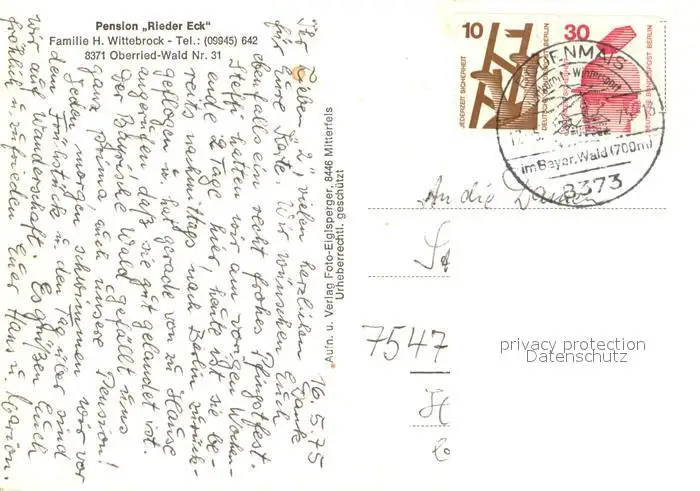 Pension „Rieder Eck"
Familie H. Wittebrock - Tel.: (09945) 642
8371 Oberried-Wald Nr. 31
16.5.75
Ihr lieben „2", vielen herzlichen Dank
für Eure Karte. Wir wünschen Euch
ebenfalls ein recht frohes Pfingstfest.
Steffi hatten wir am vorigen Wochen-
ende 2 Tage hier, heute ist sie be-
reits nachmittags nach Berlin zurück-
geflogen u. hat gerade von zu Hause
angerufen, daß sie gut gelandet ist.
Der Bayrische Wald gefällt uns
ganz prima auch unsere Pension!
Jeden morgen schwimmen wir vor
dem Frühstück u. den Tag über sind
wir auf Wanderschaft. Es grüßen Euch
fröhlich u. zufrieden Euer Hans u. Marion.
Aufn. u. Verlag Foto-Eiglsperger, 8446 Mitterfels
Urheberrechtl. geschützt
10
JEDERZEIT SICHERHEIT
DEUTSCHE BUNDESPOST BERLIN
30
DEUTSCHE BUNDESPOST BERLIN
DENMAIS
Wintersport
im Bayer. Wald (700m)
8373
An die Damen
7547
privacy protection
Datenschutz